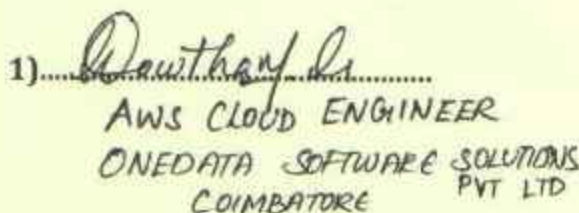 1)..........................
AWS CLOUD ENGINEER
ONEDATA SOFTWARE SOLUTIONS
PVT LTD
COIMBATORE